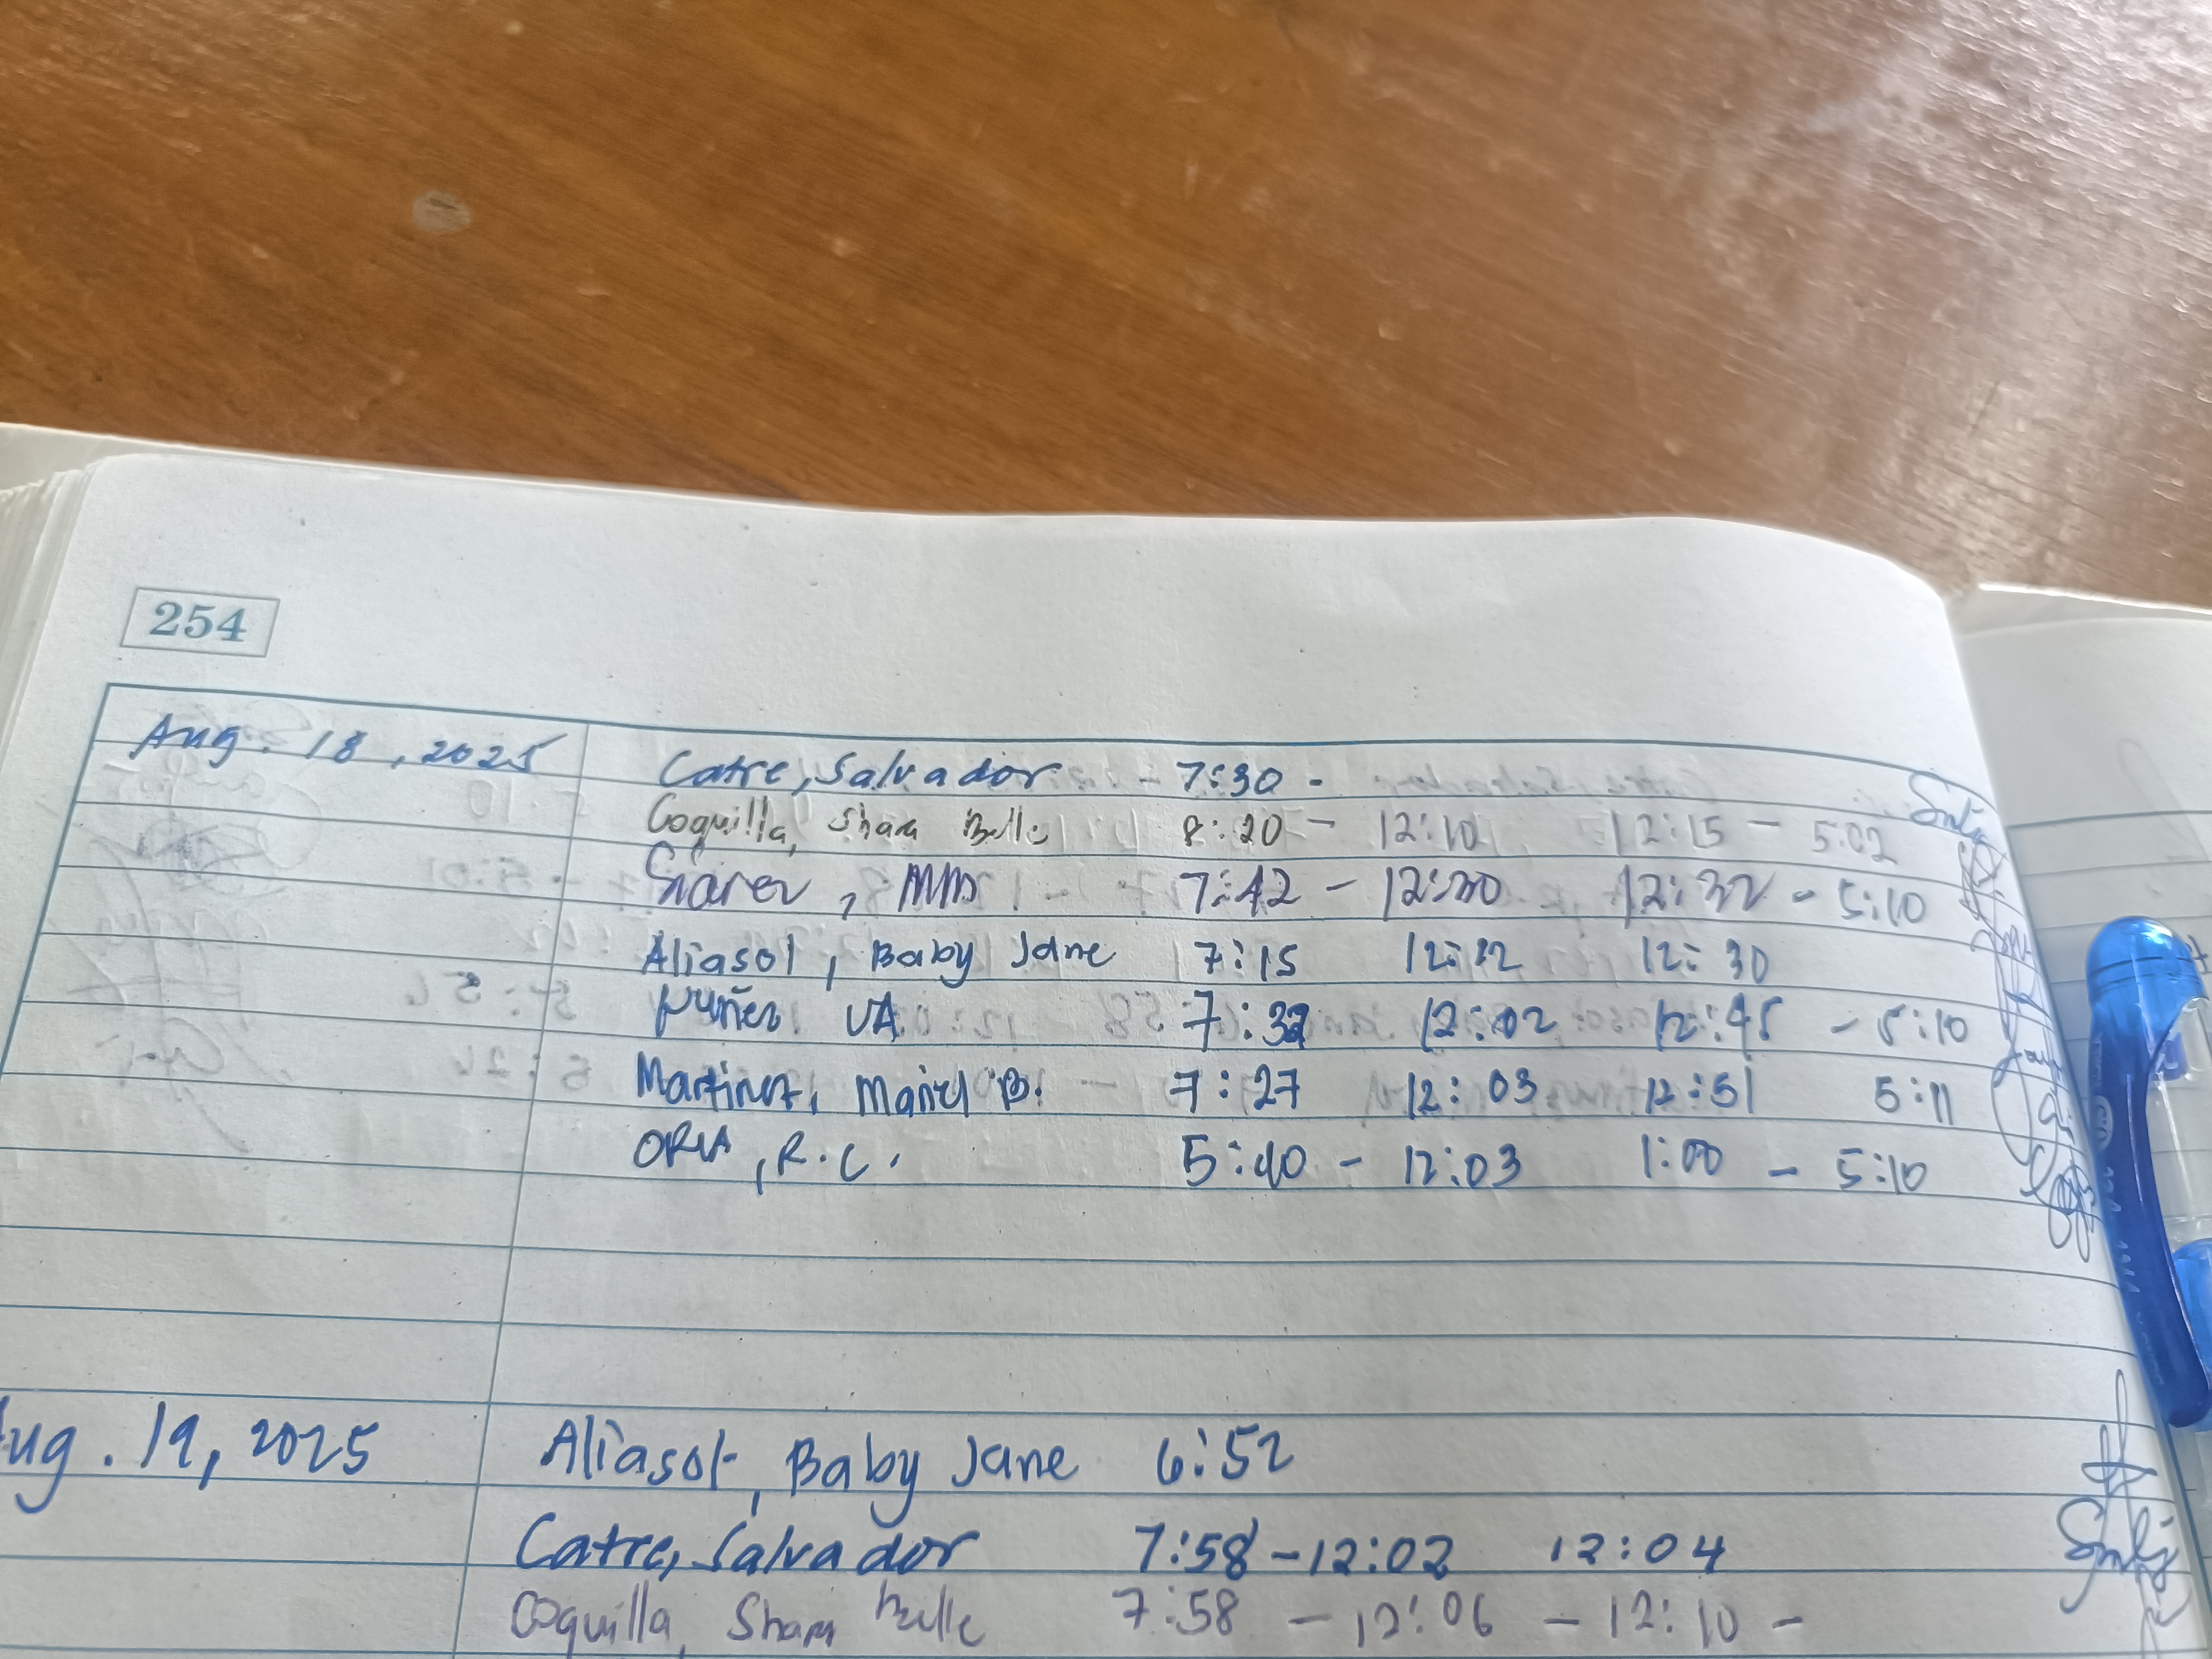 254
Aug. 18, 2025 Catre, Salvador - 7:30 -
Coquilla, Sham Belle 8:20 - 12:10 12:15 - 5:02
MM 7:42 - 12:30 12:32 - 5:10
Aliasol, Baby Jane 7:15 12:22 12:30
Nuñez VA. 7:32 12:02 12:45 - 5:10
Martinez, B. 7:27 12:03 12:51 5:11
ORIA, R.C. 5:40 - 12:03 1:00 - 5:10
ug. 19, 2025 Aliasol, Baby Jane 6:52
Catre, Salvador 7:58 - 12:02 12:04
Coquilla, Sham Belle 7:58 - 12:06 - 12:10 -